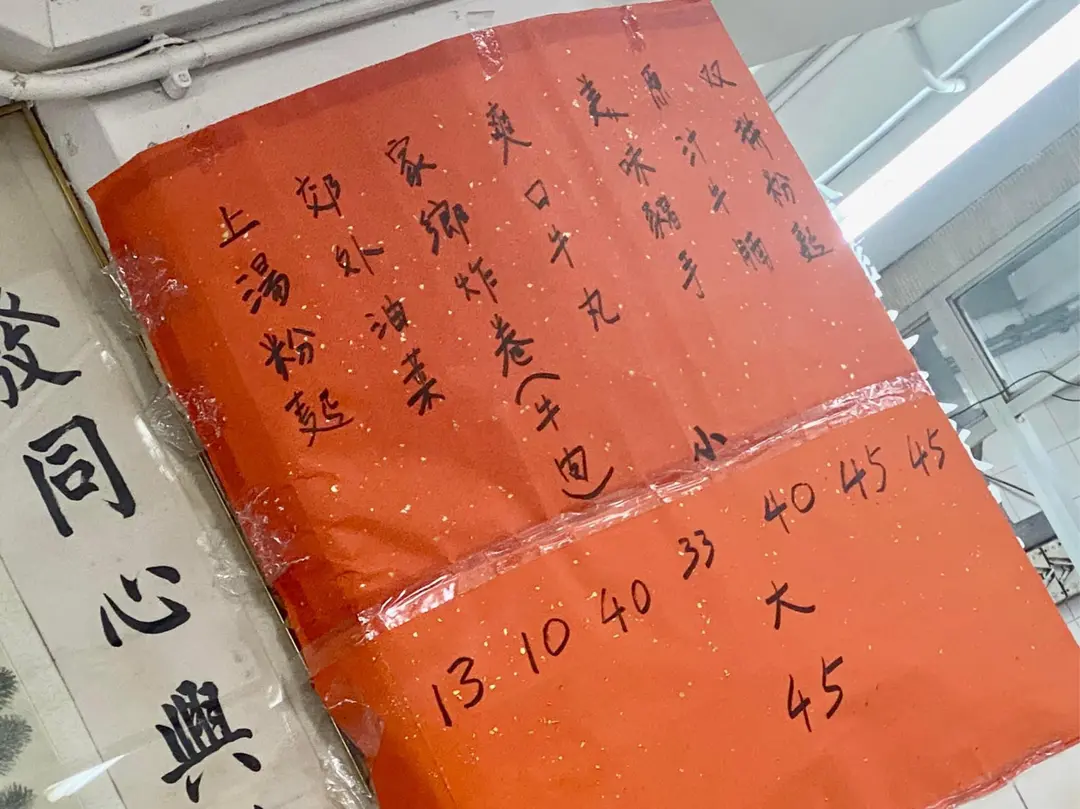 双拼粉麵 45
原汁牛腩 45
美味豬手 小 40 大 45
爽口牛丸 33
家鄉炸卷(牛肉) 40
郊外油菜 10
上湯粉麵 13
發同心興